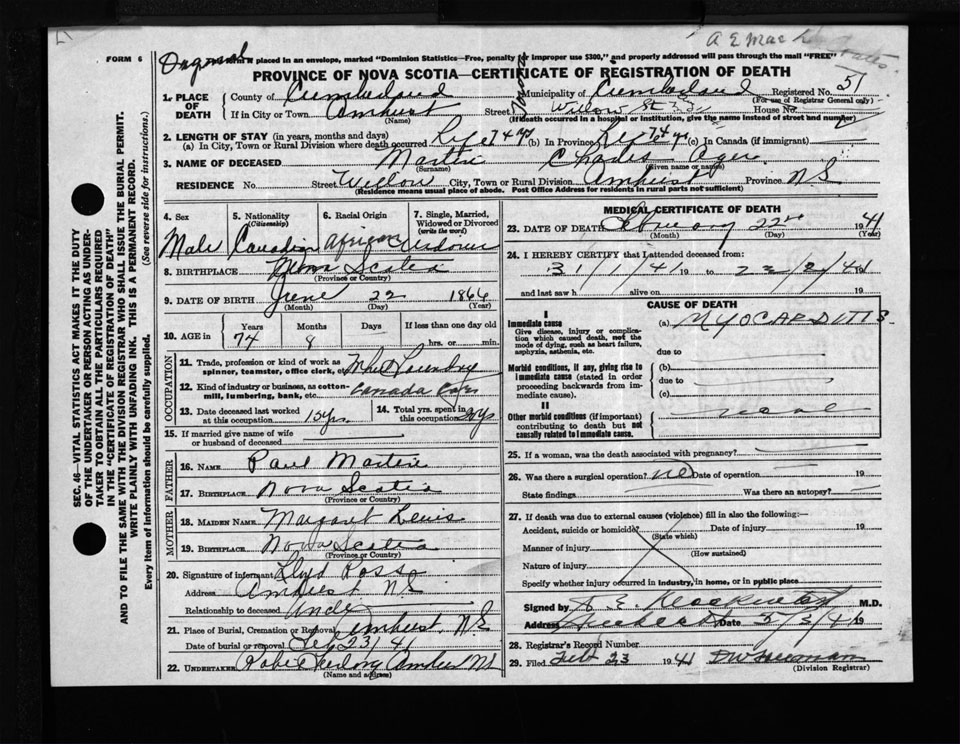 FORM 6
placed in an envelope, marked "Dominion Statistics—Free, penalty for improper use $300," and properly addressed will pass through the mail "FREE"
PROVINCE OF NOVA SCOTIA—CERTIFICATE OF REGISTRATION OF DEATH
1. PLACE OF DEATH County of Cumberland Municipality of Cumberland Registered No. 51
(For use of Registrar General only)
If in City or Town Amherst Street Willow St House No.
(Name) (If death occurred in a hospital or institution, give the name instead of street and number)
2. LENGTH OF STAY (in years, months and days)
(a) In City, Town or Rural Division where death occurred Life 74 yrs (b) In Province Life 74 yrs (c) In Canada (if immigrant)
3. NAME OF DECEASED Martin Charles
(Surname) (Given name or names)
RESIDENCE No. Street Willow City, Town or Rural Division Amherst Province N.S.
(Residence means usual place of abode. Post Office Address for residents in rural parts not sufficient)
4. Sex Male
5. Nationality (Citizenship) Canadian
6. Racial Origin African
7. Single, Married, Widowed or Divorced (write the word) Widower
8. BIRTHPLACE Nova Scotia
(Province or Country)
9. DATE OF BIRTH June 22 1866
(Month) (Day) (Year)
10. AGE in Years Months Days If less than one day old
74 8 hrs. or min.
OCCUPATION
11. Trade, profession or kind of work as spinner, teamster, office clerk, etc.
12. Kind of industry or business, as cotton-mill, lumbering, bank, etc. Canada Cars
13. Date deceased last worked at this occupation 15 yrs.
14. Total yrs. spent in this occupation 20 yrs
15. If married give name of wife or husband of deceased
FATHER
16. NAME Paul Martin
17. BIRTHPLACE Nova Scotia
(Province or Country)
MOTHER
18. MAIDEN NAME Margaret Lewis
19. BIRTHPLACE Nova Scotia
(Province or Country)
20. Signature of informant Lloyd Ross
Address Amherst N.S.
Relationship to deceased Uncle
21. Place of Burial, Cremation or Removal Amherst, N.S.
Date of burial or removal Feb 23/41
22. UNDERTAKER Amherst N.S.
(Name and address)
MEDICAL CERTIFICATE OF DEATH
23. DATE OF DEATH February 22nd 1941
(Month) (Day) (Year)
24. I HEREBY CERTIFY that I attended deceased from:
31/1/41 19 to 22/2/41 19
and last saw h alive on 19
CAUSE OF DEATH
I
Immediate cause (a) MYOCARDITIS
Give disease, injury or complication which caused death, not the mode of dying, such as heart failure, asphyxia, asthenia, etc.
due to
Morbid conditions, if any, giving rise to immediate cause (stated in order proceeding backwards from immediate cause). (b)
due to
(c)
II
Other morbid conditions (if important) contributing to death but not causally related to immediate cause.
25. If a woman, was the death associated with pregnancy?
26. Was there a surgical operation? no Date of operation 19
State findings Was there an autopsy?
27. If death was due to external causes (violence) fill in also the following:
Accident, suicide or homicide? Date of injury 19
(State which)
Manner of injury
(How sustained)
Nature of injury
Specify whether injury occurred in industry, in home, or in public place
Signed by M.D.
Address Amherst Date 5/3/41 19
28. Registrar's Record Number
29. Filed Feb 23 1941
(Division Registrar)
SEC. 46—VITAL STATISTICS ACT MAKES IT THE DUTY
OF THE UNDERTAKER OR PERSON ACTING AS UNDER-
TAKER TO OBTAIN ALL THE PARTICULARS REQUIRED
IN THE "CERTIFICATE OF REGISTRATION OF DEATH"
AND TO FILE THE SAME WITH THE DIVISION REGISTRAR WHO SHALL ISSUE THE BURIAL PERMIT.
WRITE PLAINLY WITH UNFADING INK. THIS IS A PERMANENT RECORD.
Every item of information should be carefully supplied. (See reverse side for instructions.)